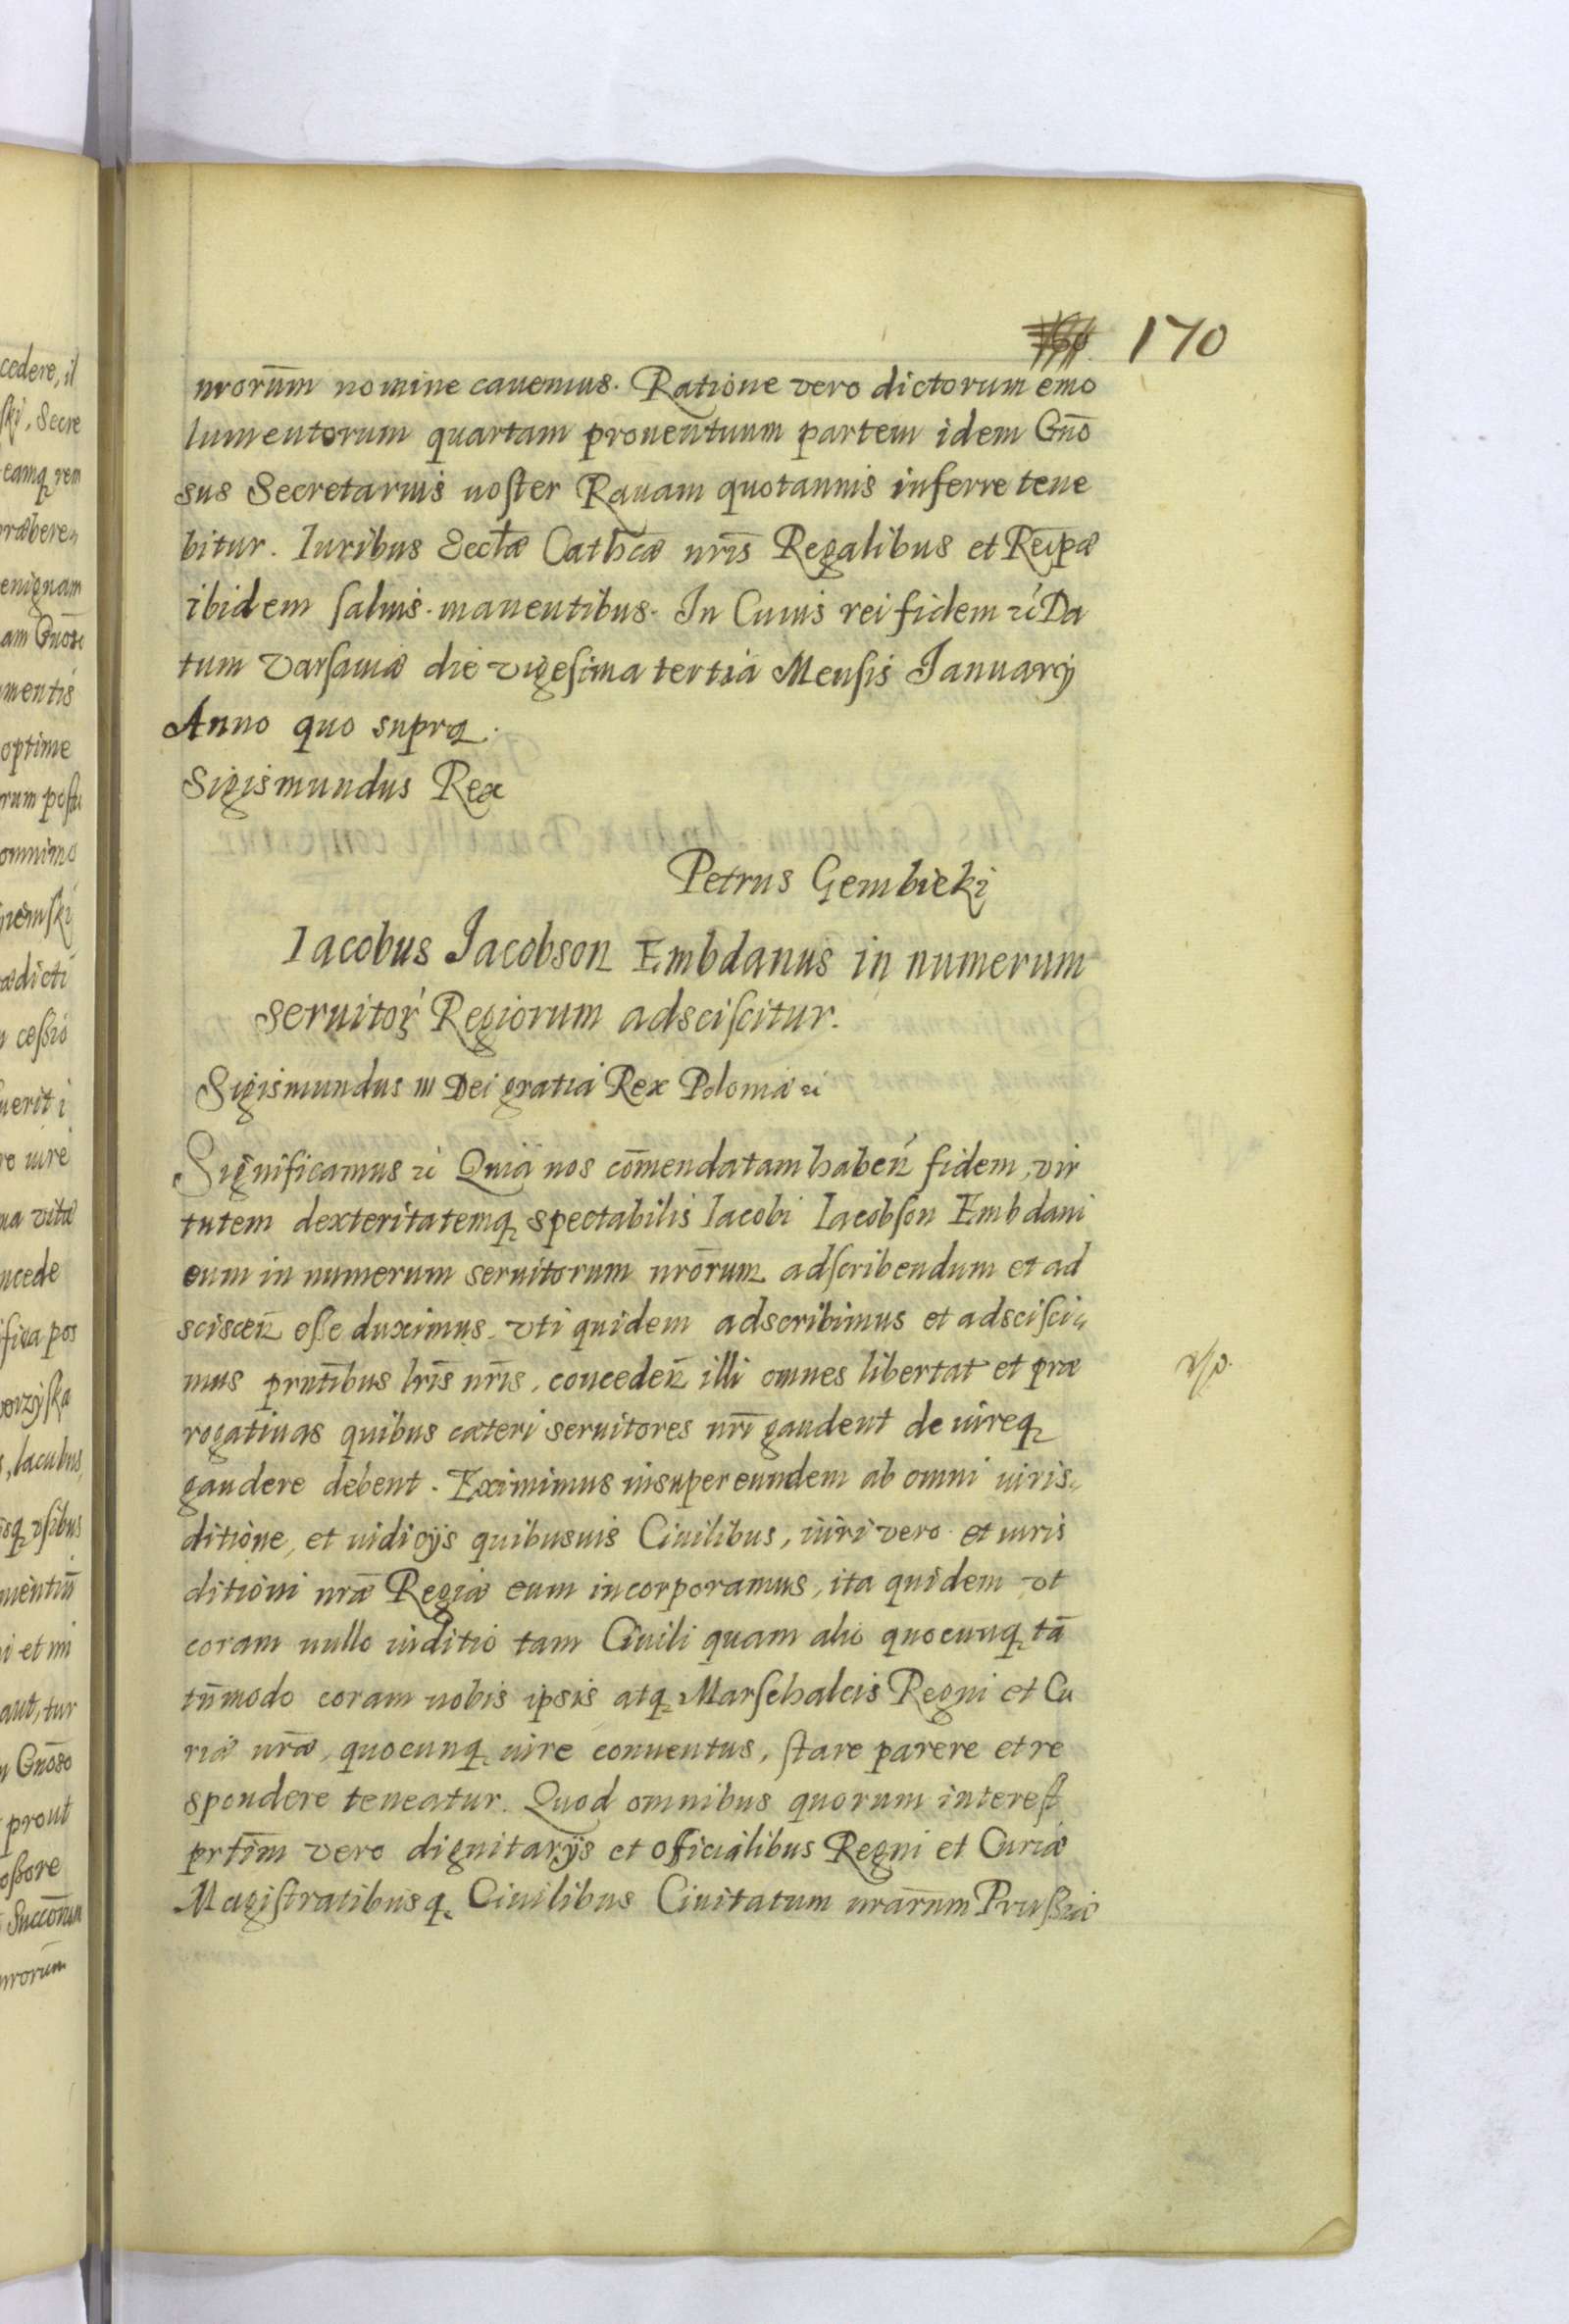 170
nrorum̄ nomine cauemus. Ratione vero dictorum emo
lumentorum quartam prouentuum partem idem Gnō
sus Secretarius noster Rauam quotannis inferre tene
bitur. Iuribus Ecctæ Cathcæ nris̄ Regalibus et Reipæ
ibidem saluis manentibus. In Cuius rei fidem etc Da
tum Varsauiæ die vigesima tertia Mensis Januarij
Anno quo supra.
Sigismundus Rex
Petrus Gembicki
Iacobus Jacobson Embdanus in numerum
seruitoꝝ Regiorum adsciscitur.
Sigismundus III Dei gratia Rex Poloniæ etc
Significamus etc Quia nos com̄endatam haben̄ fidem, vir
tutem dexteritatemq spectabilis Iacobi Iacobson Embdani
eum in numerum seruitorum nrōrum adscribendum et ad
sciscen̄ esse duximus. vti quidem adscribimus et adscisci„
mus prntībus lris̄ nris̄, conceden̄ illi omnes libertat et præ
rogatiuas quibus cæteri seruitores nrī gaudent de iureq
gaudere debent. Eximimus insuper eundem ab omni iuris„
ditione, et iudicijs quibusuis Ciuilibus, iuri vero et iuris
ditioni nrǣ Regiæ eum incorporamus, ita quidem vt
coram nullo iuditio tam Ciuili quam alio quocunq tā
tūmodo coram nobis ipsis atq Marschalcis Regni et Cu
riæ nrǣ, quocunq iure conuentus, stare parere et re
spondere teneatur. Quod omnibus quorum interest
prtīm vero dignitarijs et officialibus Regni et Curiæ
Magistratibusq Ciuilibus Ciuitatum nrarūm Prussiæ